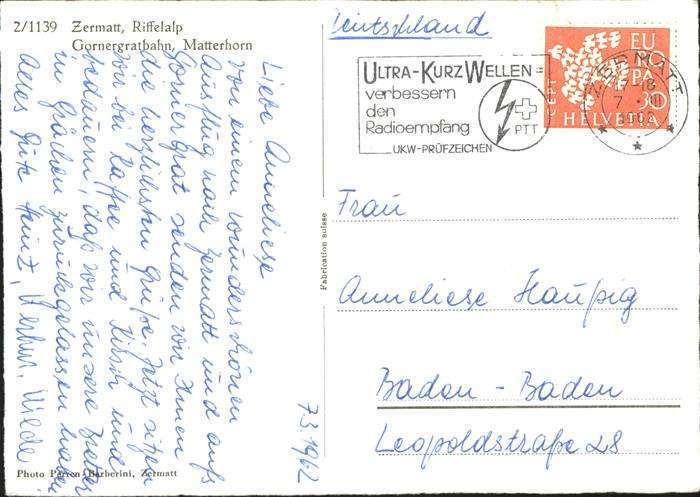 2/1139 Zermatt, Riffelalp
Gornergratbahn, Matterhorn
Liebe Anneliese
Von einem wunderschönen
Ausflug nach Zermatt und aufs
Gornergrat senden wir Ihnen
die herzlichsten Grüße. Jetzt sitzen
wir bei Kaffee und Kirsch und
bedauern, daß wir unsere Bretter
in Grächen zurückgelassen haben
Alles Gute Heinz,
7.3.1962
Photo Perren-Barberini, Zermatt
Fabrication suisse
Deutschland
ULTRA-KURZWELLEN=
verbessern
den
Radioempfang
UKW-PRÜFZEICHEN
PTT
ZERMATT
CEPT
EU
RO
PA
30
HELVETIA
Frau
Anneliese Haußig
Baden-Baden
Leopoldstraße 28